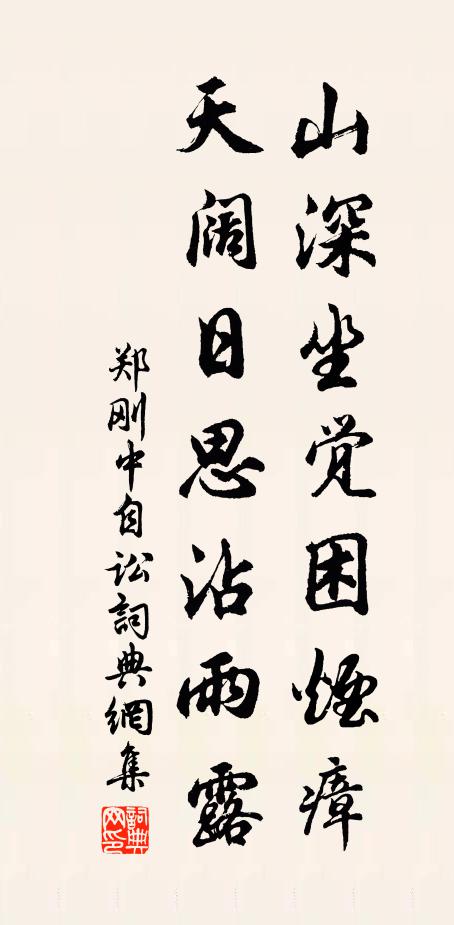 山深坐觉困煙瘴
天阔日思沾雨露
郑刚中自讼詞典網集
詞典网印